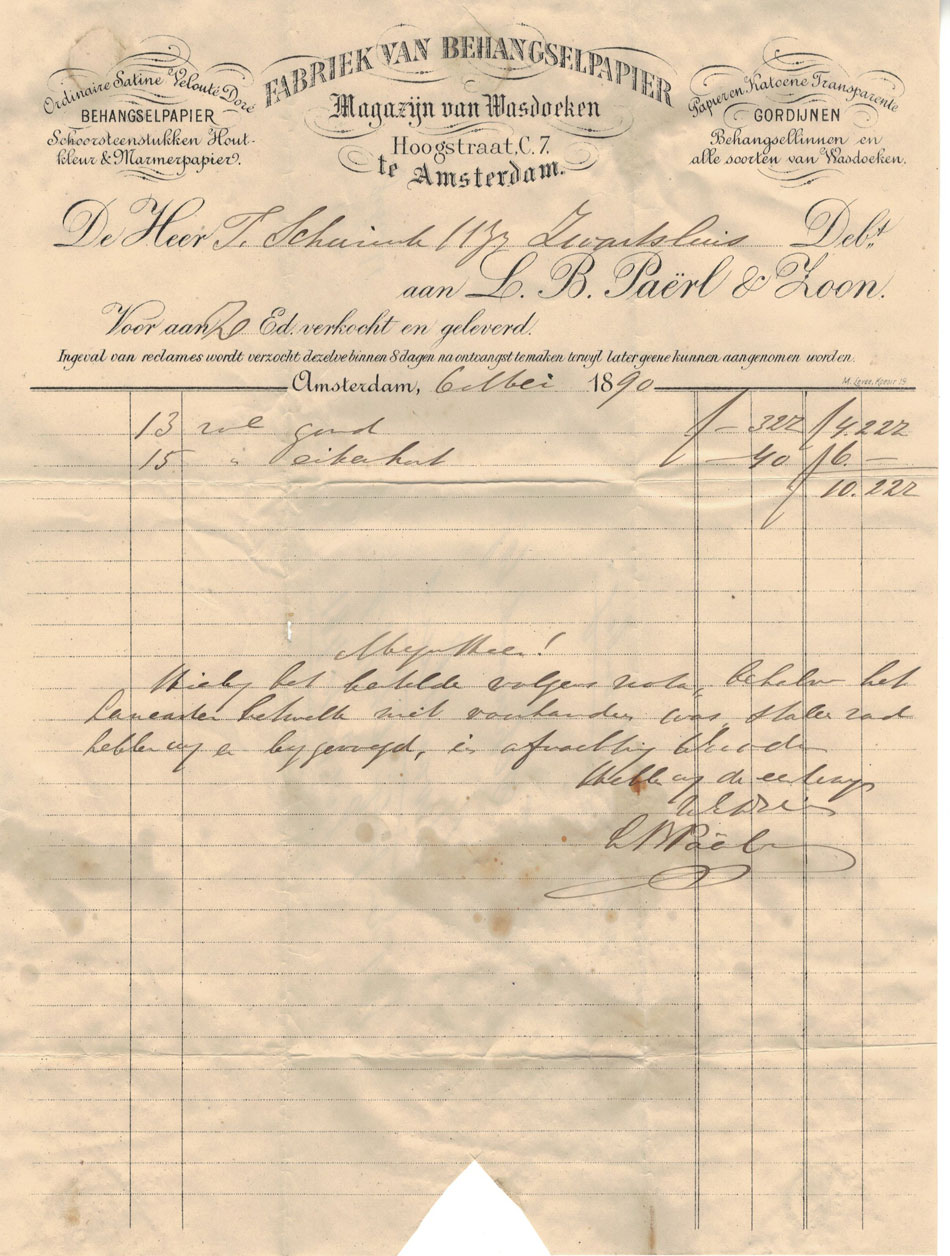 Ordinaire Satine Velouté Doré
BEHANGSELPAPIER
Schoorsteenstukken Hout-
kleur & Marmerpapier.
FABRIEK VAN BEHANGSELPAPIER
Magazijn van Wasdoeken
Hoogstraat, C. 7.
te Amsterdam.
Papier en Katoene Transparente
GORDIJNEN
Behangsellinnen en
alle soorten van Wasdoeken.
De Heer T. Zwartsluis Debt.
aan L. B. Paërl & Zoon.
Voor aan Ed. verkocht en geleverd.
Ingeval van reclames wordt verzocht dezelve binnen 8 dagen na ontvangst te maken terwyl later geene kunnen aangenomen worden.
Amsterdam, 6 Mei 1890
13 rol goud
15 " eikenhout 40 6. –
10.
Mijn Heer!
Hierby het bestelde volgens nota, behalve het
niet voorhanden was, stalen
hebben wy er bygevoegd, en
Hebben wy de eer
L B Paërl